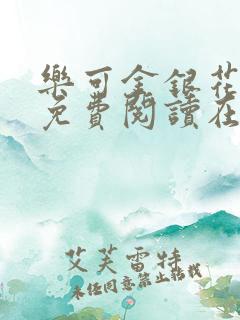 樂可金銀花
免費閱讀在
艾芙雷特
未經同意禁止轉載